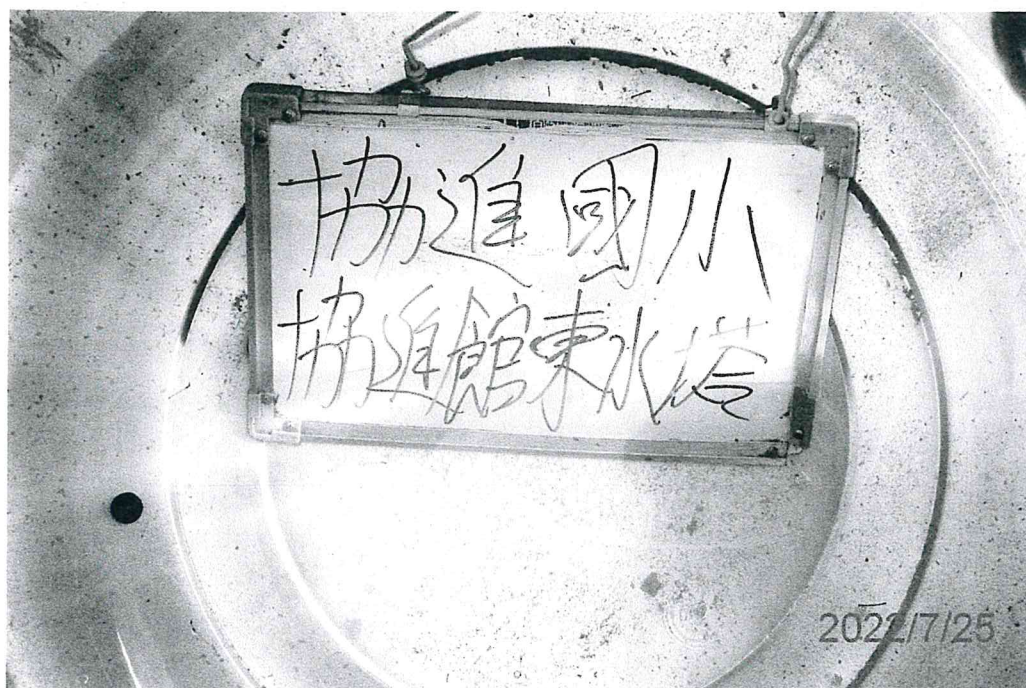 協進國小
協進館東水塔
2022/7/25